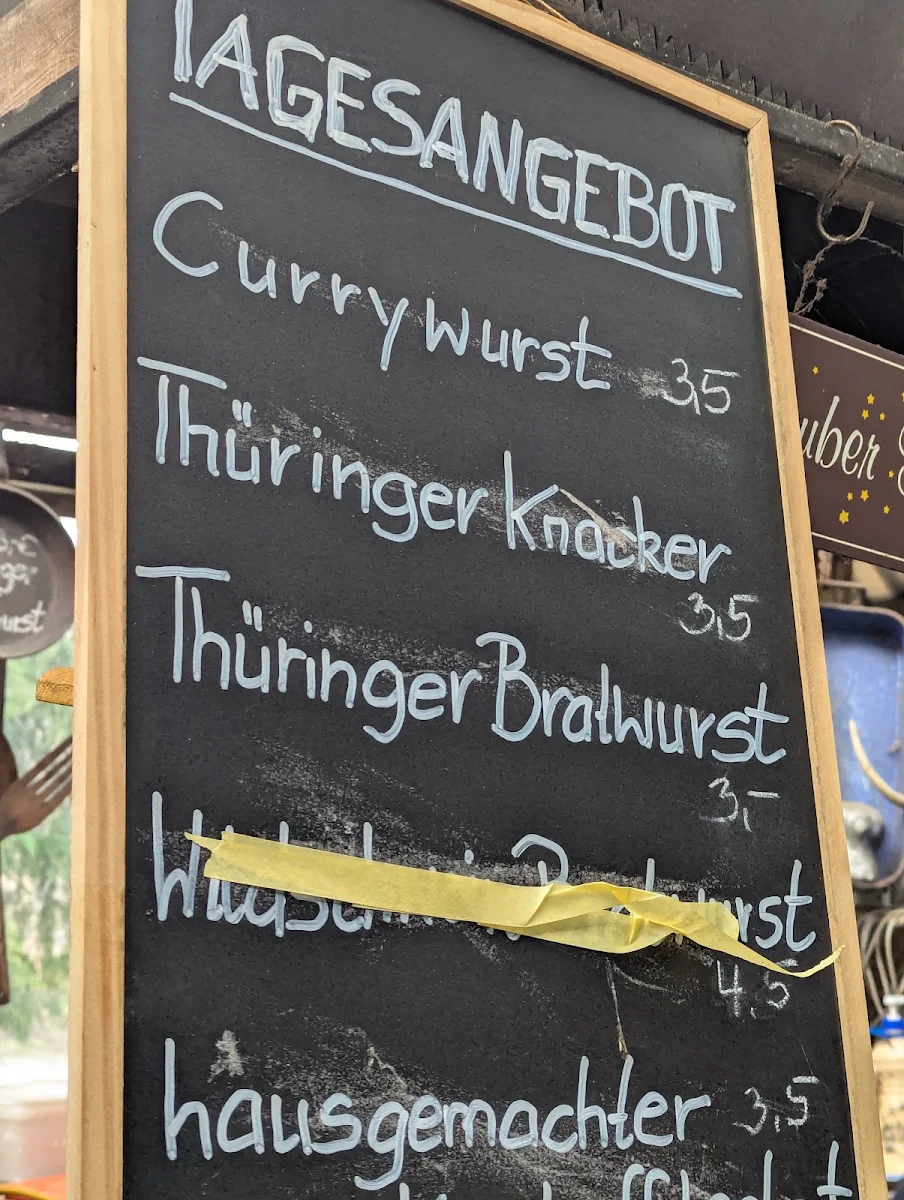 TAGESANGEBOT
Currywurst 3,5
Thüringer Knacker
3,5
Thüringer Bratwurst
3,-
Wildschwein Bratwurst
4,5
hausgemachter 3,5
uber
urst